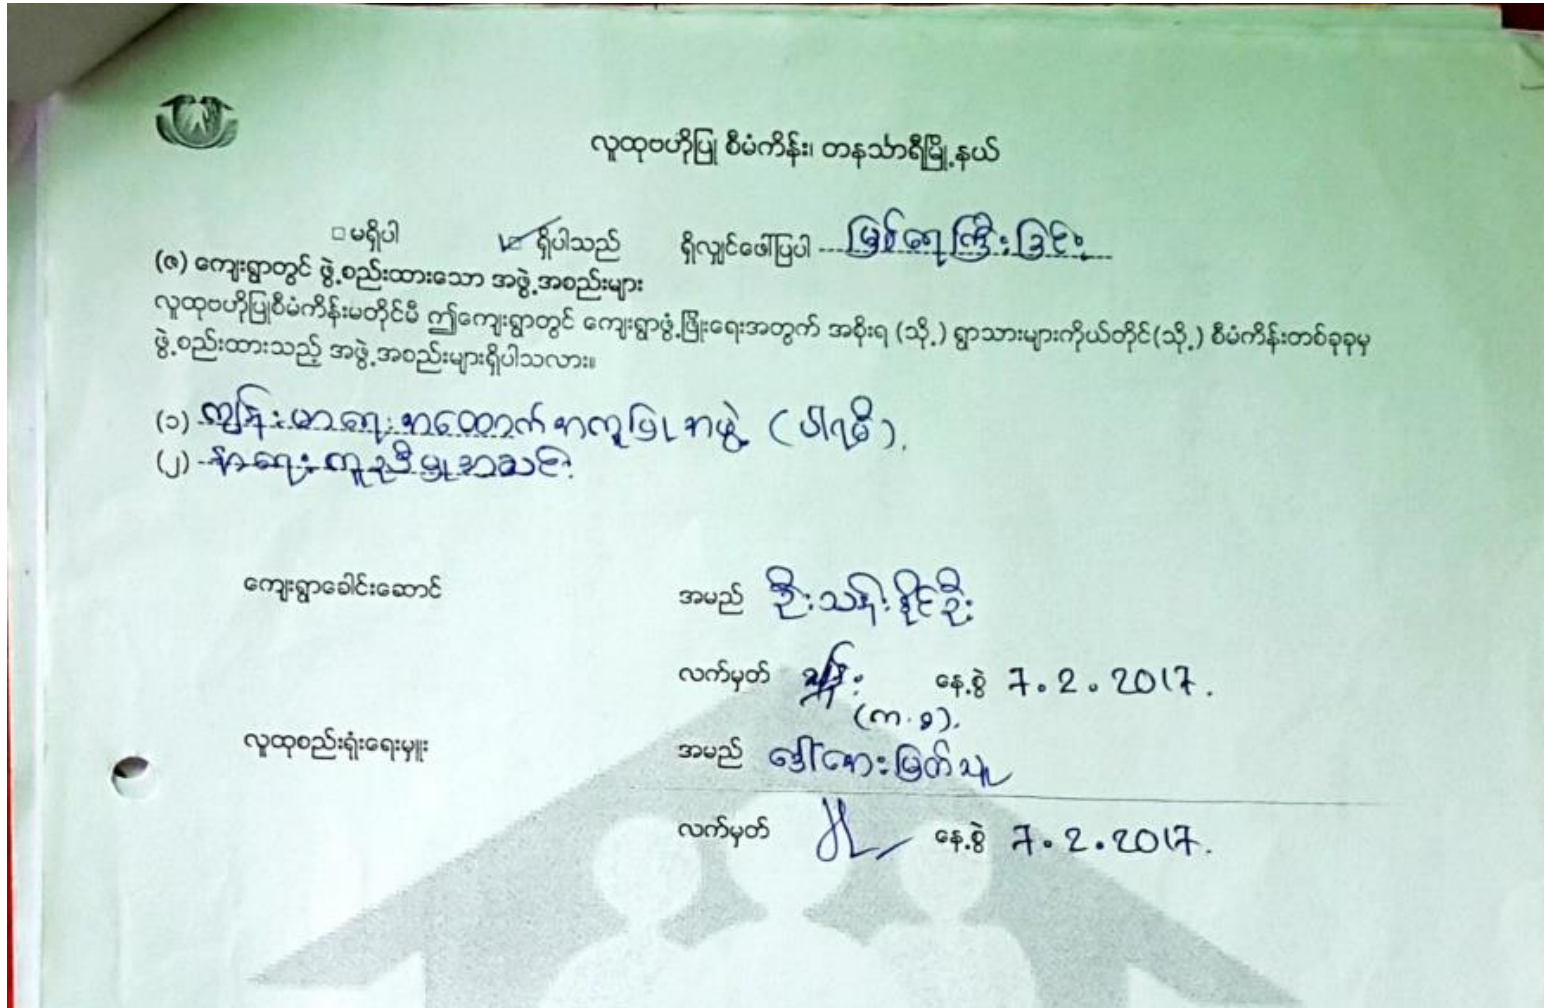 လူထုဗဟိုပြု စီမံကိန်း၊ တနင်္သာရီမြို့နယ်
□ မရှိပါ ☑ ရှိပါသည် ရှိလျှင်ဖော်ပြပါ မြစ်ရေကြီးခြင်း
(ဇ) ကျေးရွာတွင် ဖွဲ့စည်းထားသော အဖွဲ့အစည်းများ
လူထုဗဟိုပြုစီမံကိန်းမတိုင်မီ ဤကျေးရွာတွင် ကျေးရွာဖွံ့ဖြိုးရေးအတွက် အစိုးရ (သို့) ရွာသားများကိုယ်တိုင်(သို့) စီမံကိန်းတစ်ခုခုမှ
ဖွဲ့စည်းထားသည့် အဖွဲ့အစည်းများရှိပါသလား။
(၁) ကျန်းမာရေးအထောက်အကူပြုအဖွဲ့ (ပါရမီ).
(၂) နာရေးကူညီမှုအသင်း
ကျေးရွာခေါင်းဆောင် အမည် ဦးသန်းနိုင်ဦး
လက်မှတ် နေ့စွဲ 7.2.2017.
လူထုစည်းရုံးရေးမှူး အမည် ဒေါ်အေးမြတ်သူ
လက်မှတ် နေ့စွဲ 7.2.2017.